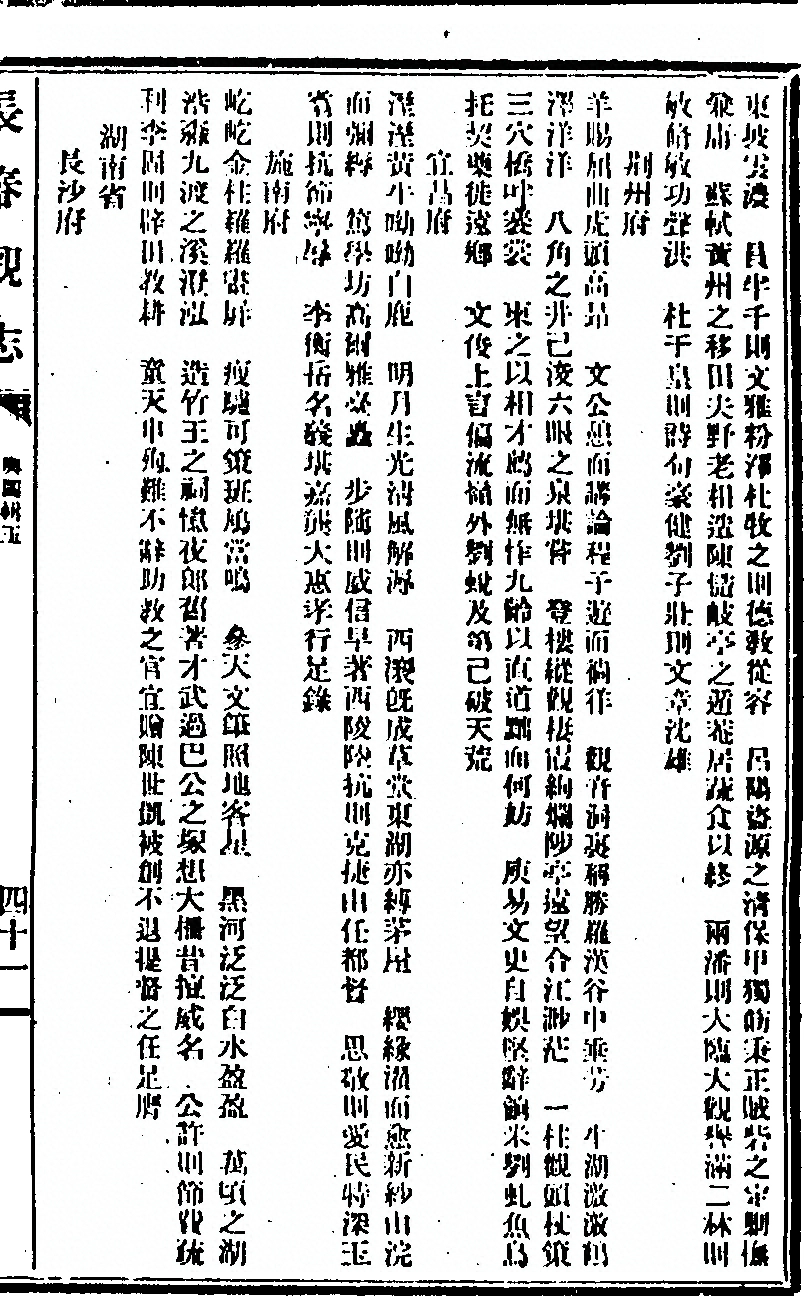 東坡雲濃 員半千則文雅粉澤杜牧之則德教從容 呂陽盜源之清保甲獨飭秉正賊砦之牢剿撫
兼庸 蘇軾黃州之移田夫野老相從陳慥岐亭之遁菴居蔬食以終 兩潘則大臨大觀譽滿二林則
敏脩敏功聲洪 杜于皇則詩句豪健劉子壯則文章沈雄
荆州府
羊腸屈曲虎頭高昂 文公憩而講論程子遊而徜徉 觀音洞裏稱勝羅漢谷中垂芳 牛湖激激鶴
澤洋洋 八角之井已浚六眼之泉堪嘗 登樓縱觀棲霞絢爛陟亭遠望合江渺茫 一柱觀頭杖策
三穴橋畔褰裳 東之以相才薦而無怍九齡以直道黜而何妨 庾易文史自娛堅辭餉米劉虬魚鳥
托契樂徙遠鄉 文俊上言偏流嶺外劉蛻及第已破天荒
宜昌府
涇涇黃牛呦呦白鹿 明月生光清風解溽 西瀼既成草堂東湖亦縛茅屋 纓緣濯而愈新紗由浣
而彌縟 篤學坊高爾雅臺矗 步隲則威信早著西陵陸抗則克捷由任都督 思敬則愛民特深玉
賓則抗節寧辱 李衡岳名義堪嘉龔大惠孝行足錄
施南府
屹屹金柱羅羅畫屏 瘦驢可策斑鳩當鳴 參天文筆照地客星 黑河泛泛白水盈盈 萬頃之湖
浩淼九渡之溪澄泓 造竹王之祠憶夜郎舊著才武過巴公之塚想大柵昔擅威名 公許則節費疏
利李周則辟田教耕 童天申殉難不辭助教之官宜贈陳世凱被創不退提督之任足膺
湖南省
長沙府
長春觀志
輿圖輯玉
四十一